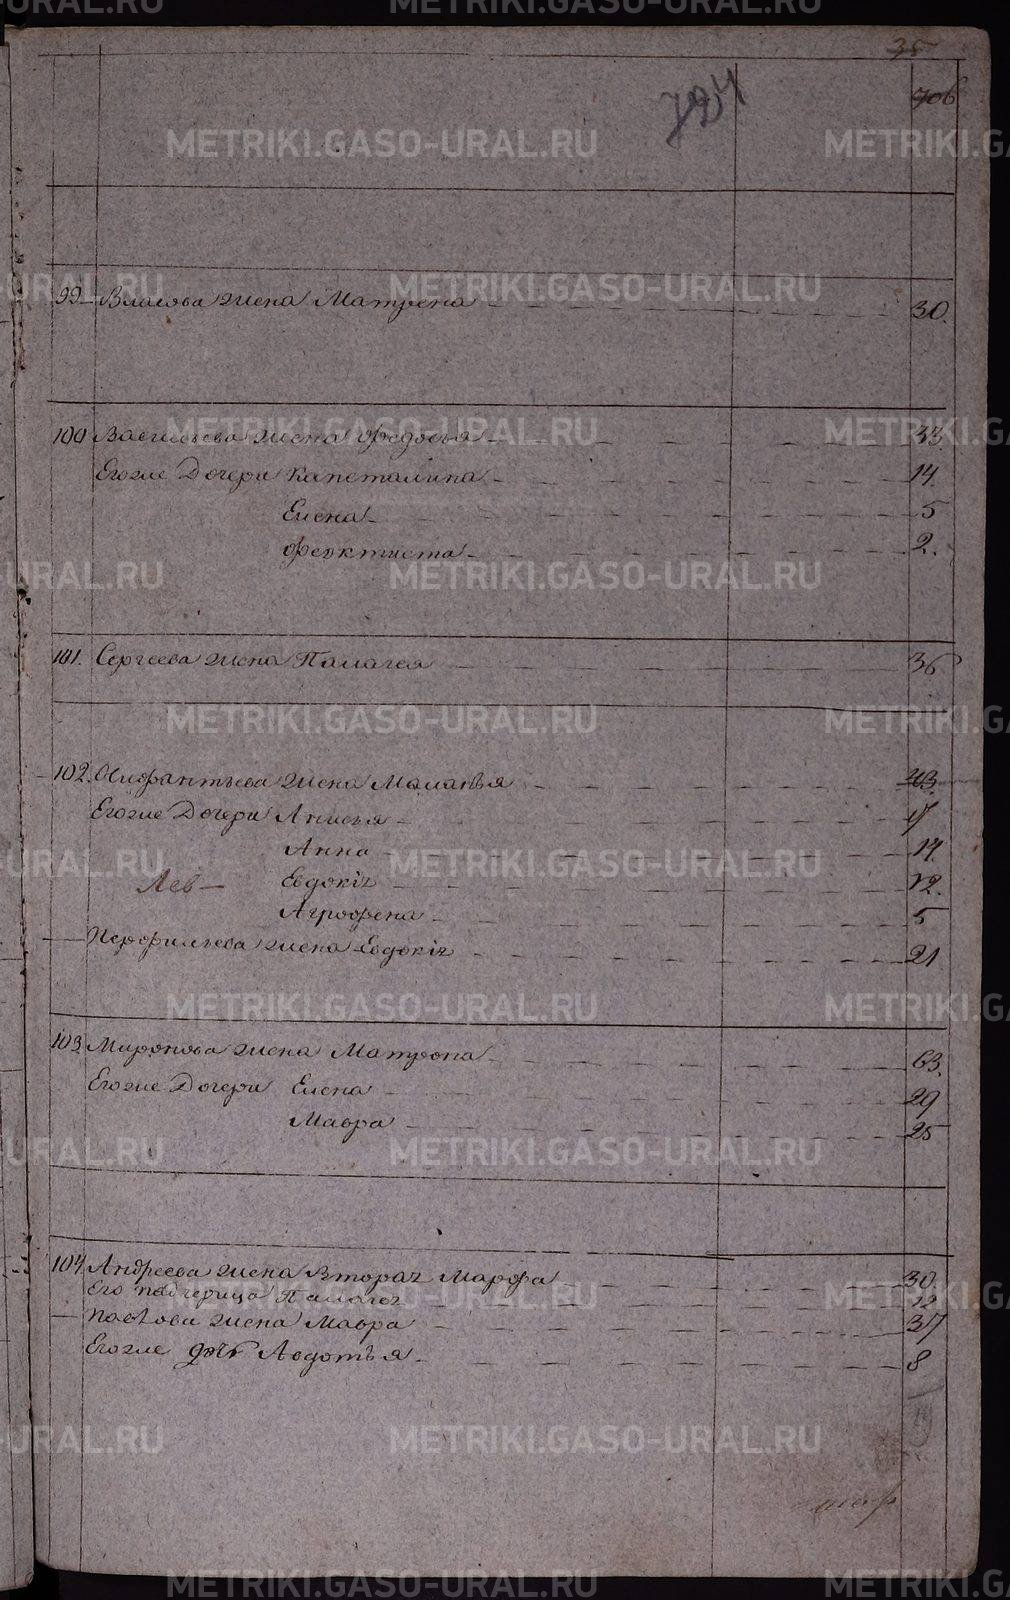 35
706
794
99. Власова жена Матрена 30.
100 Васильева жена Федосья 33.
Егоже Дочери Капеталина 14.
Елена 5
Феоктиста 2.
101. Сергеева жена Палагея 36
102. Олифантьева жена Маланья 43.
Егоже Дочери Анисья 17
Анна 14.
Лев Евдокія 12.
Аграфена 5
Перфильева жена Евдокія 21
103. Миронова жена Матрона 63.
Егоже Дочери Елена 29
Мавра 25
104 Андреева жена Вторая Марфа 30.
Его падчерица Палагея 12
жена Мавра 37
Егоже дочь Авдотья 8
METRIKI.GASO-URAL.RU